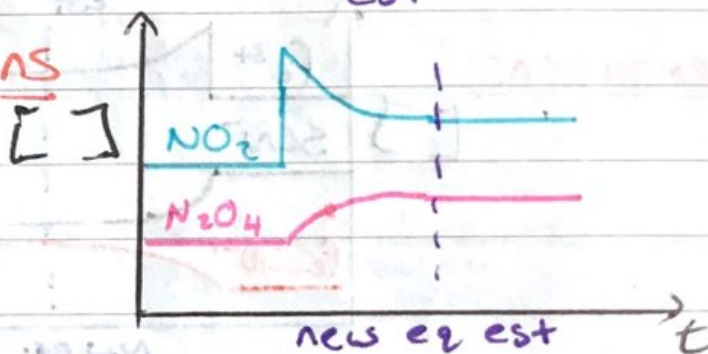 ns
[ ]
NO₂
N₂O₄
new eq est
t